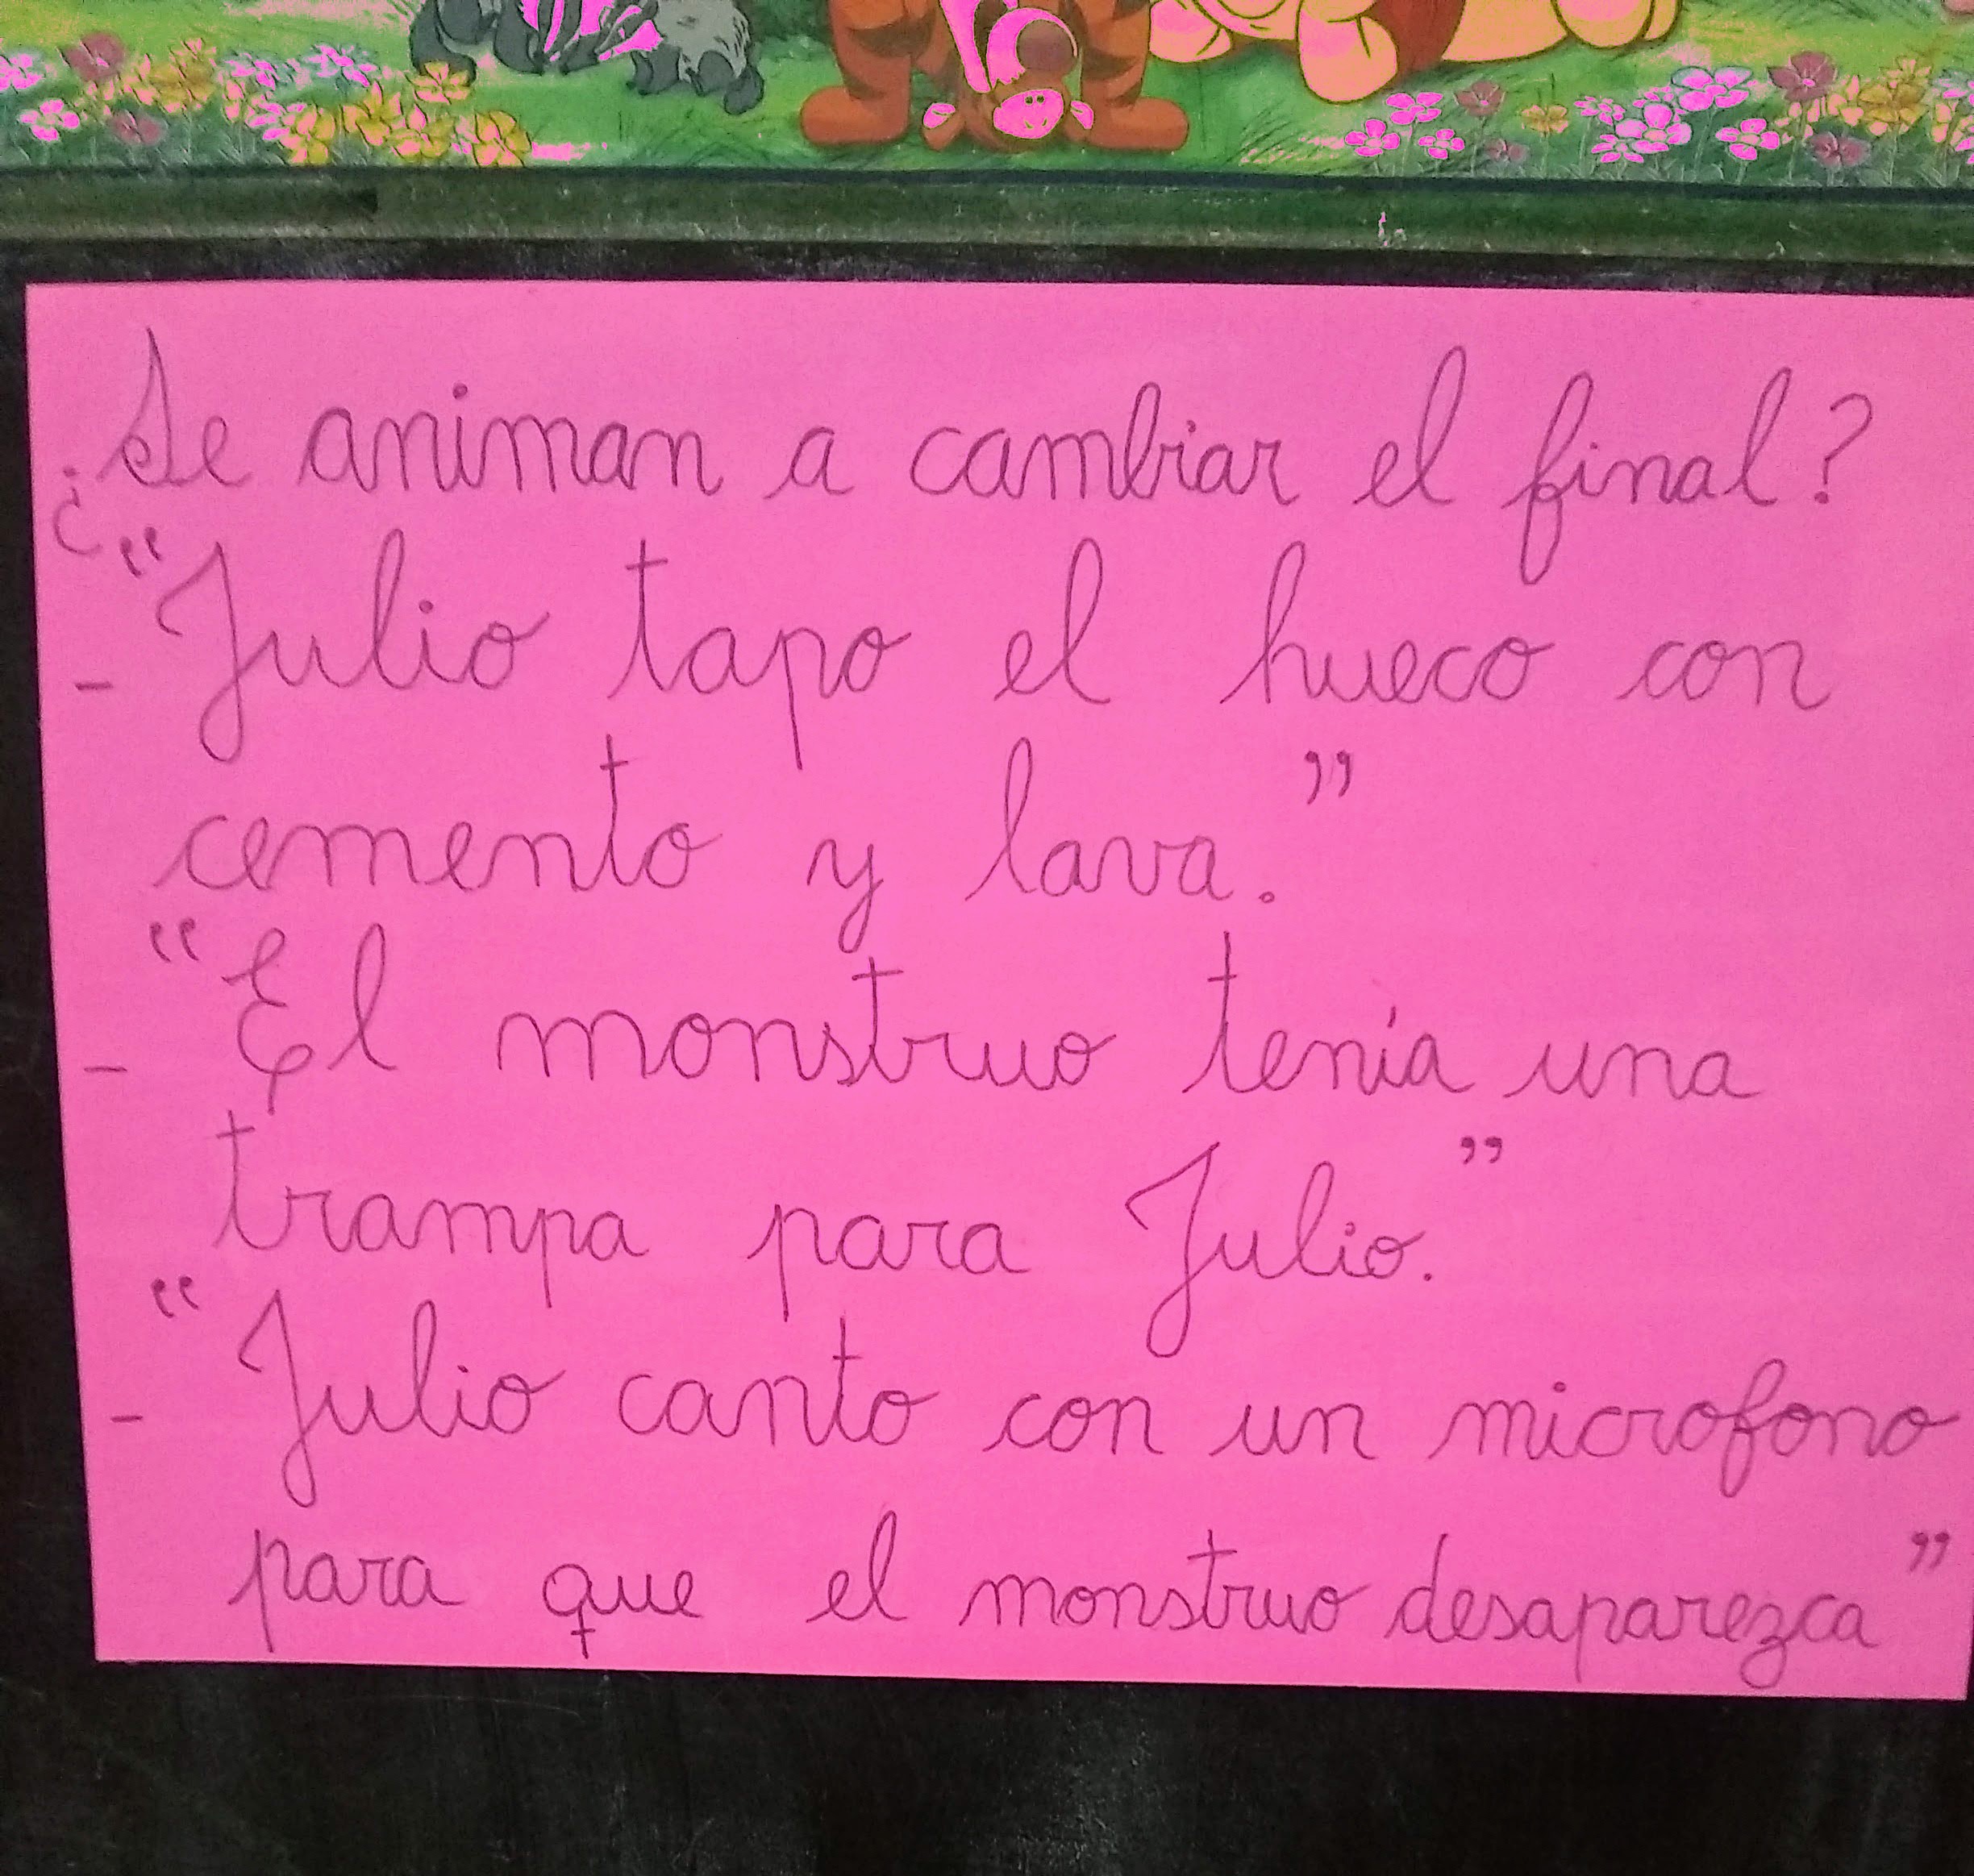 ¿Se animan a cambiar el final?
- "Julio tapo el hueco con
cemento y lava."
- "El monstruo tenía una
trampa para Julio."
- "Julio canto con un microfono
para que el monstruo desaparezca"